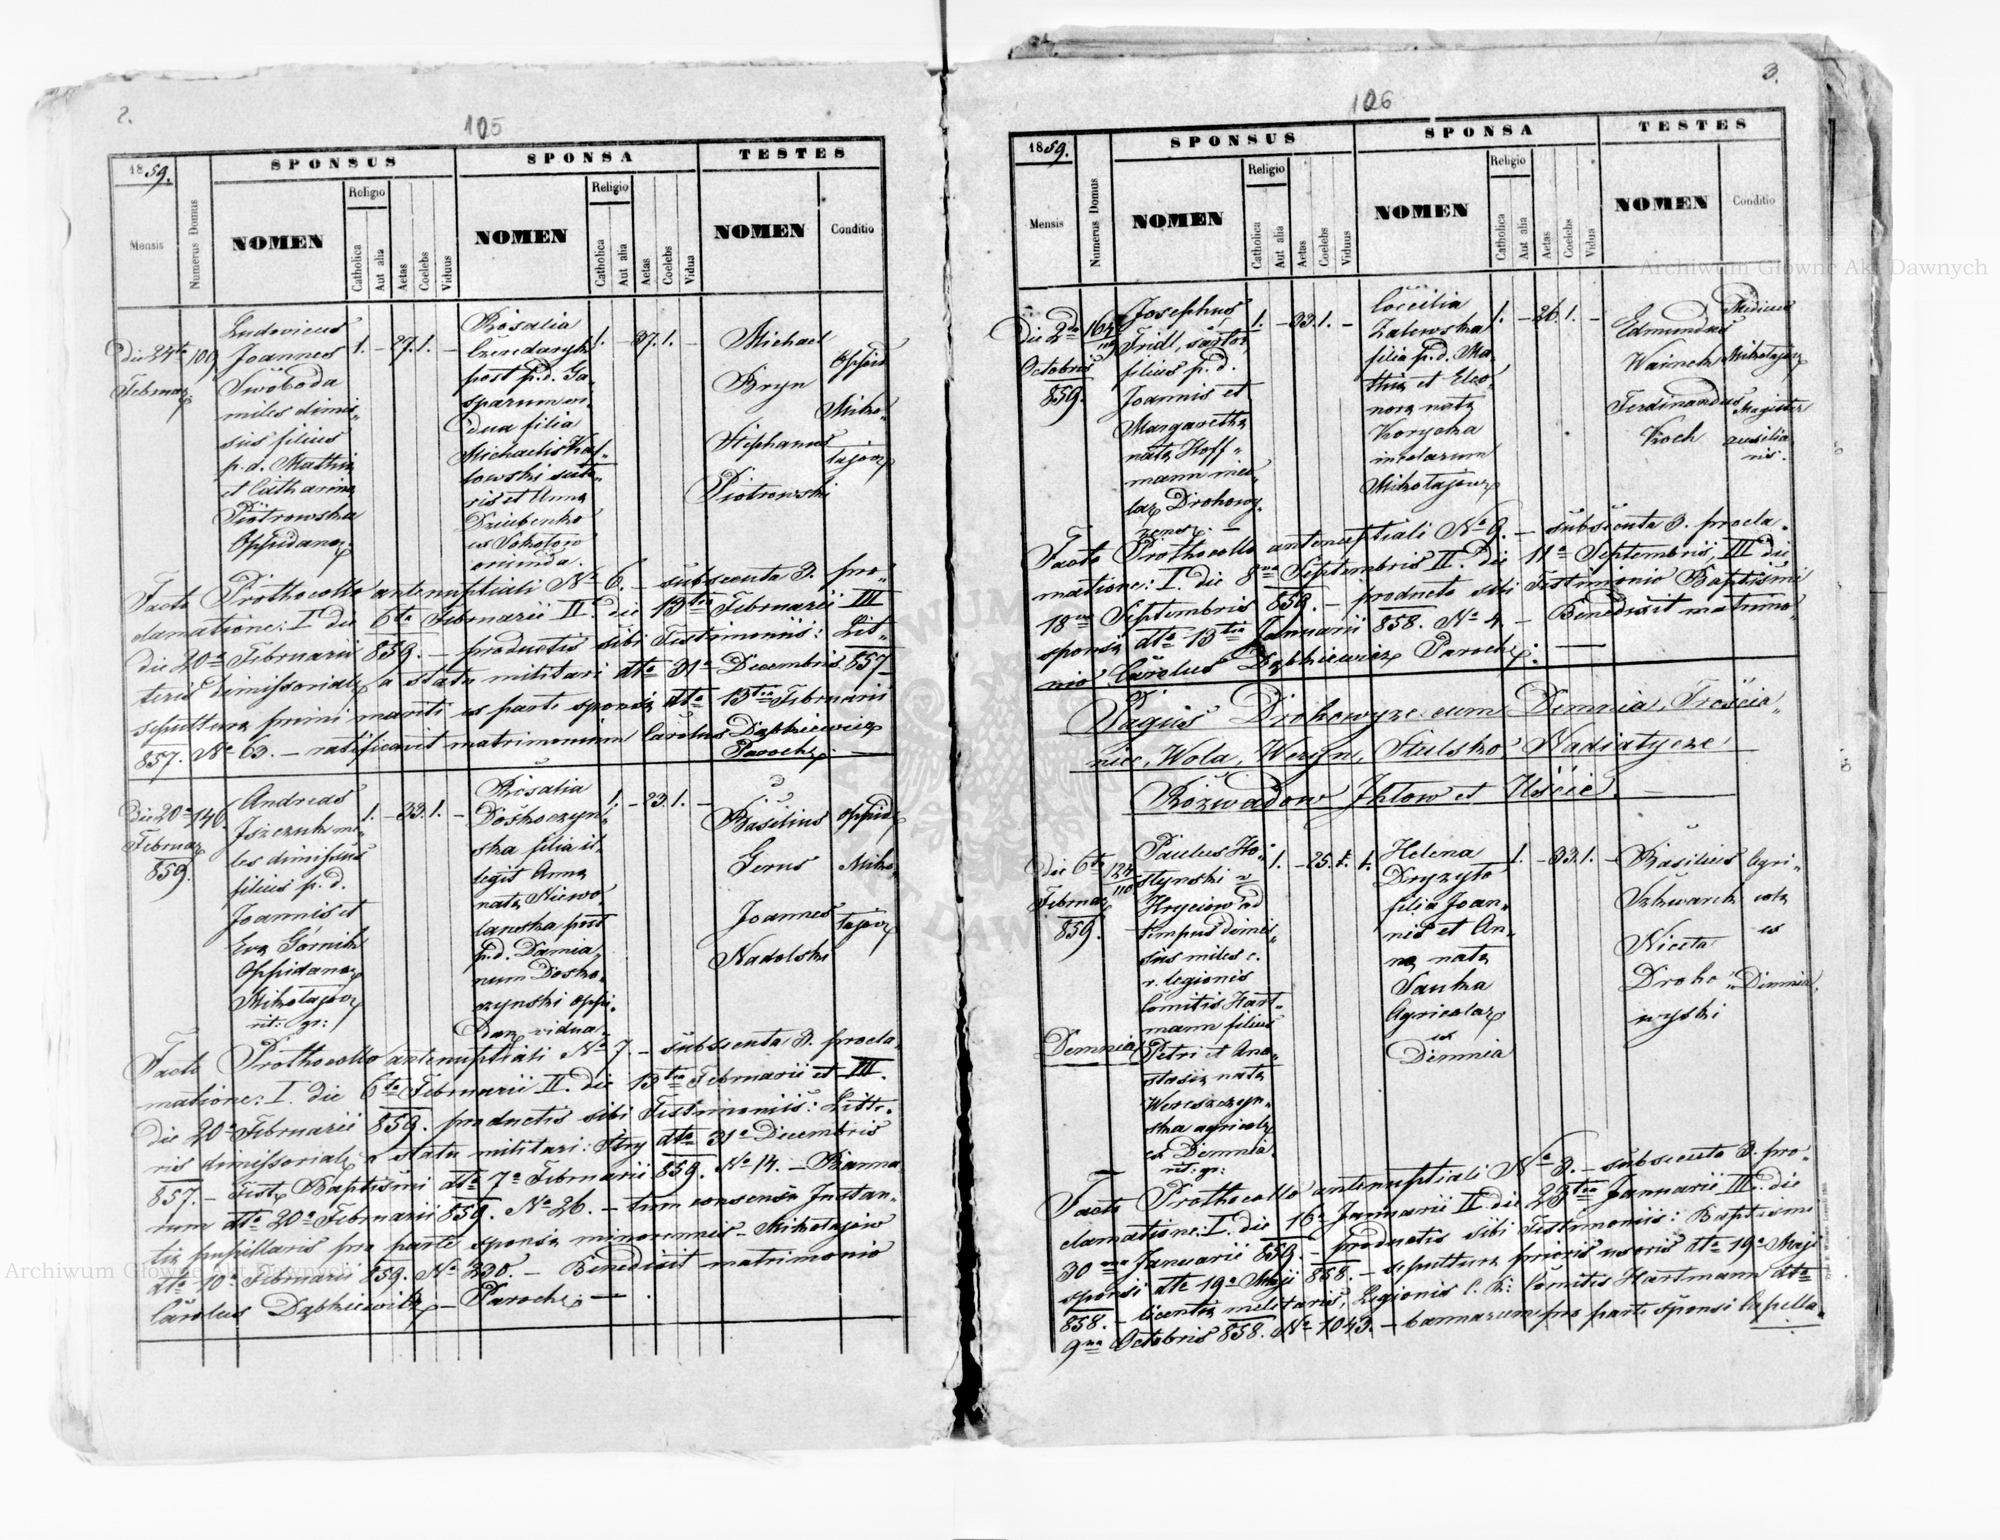 2.
105
1859.
SPONSUS
SPONSA
TESTES
Mensis
Numerus Domus
NOMEN
Religio
Catholica
Aut alia
Aetas
Coelebs
Viduus
NOMEN
Religio
Catholica
Aut alia
Aetas
Coelebs
Vidua
NOMEN
Conditio
Die 24ta
Februar
109
Ludovicus
Joannes
Swoboda
miles dimis„
sus filius
p.d. Mathiæ
et Catharinæ
Piotrowska
Oppidanor.
1. – 27. 1. –
Rosalia
post p.d. Ga„
sparum vi„
dua filia
Michaelis Koz„
lowski suto„
ris et Anna
Dziubenko
ex Sokolow
oriunda.
1. 37. 1. –
Michael
Bryn
Stephanus
Piotrowski
Oppid
Miko„
lajov
Facto Prothocollo antenuptiali No 6. – subsecuta 3. pro„
clamatione: I. die 6ta Februarii II. die 13tia Februarii III
die 20a Februarii 859. – productis sibi Testimoniis: Lit„
teris dimissorial. a statu militari dto 31a Decembris 857
sepulturæ primi mariti ex parte sponsæ dto 13tia Februarii
857. No 63. – ratificavit matrimonium Carolus Dąbkiewicz
Paroch. –
Die 20a
Februar
859.
146.
Andreas
Iszczuk mi„
les dimissus
filius p.d.
Joannis et
Eva Górnik
Oppidanor
Mikolajov
rit: gr:
1. – 33. 1. –
Rosalia
Doskoczyn„
ska filia il„
legit Anna
nata Niewo„
lanska post
p.d. Damia„
num Dosko„
czynski Oppi„
dan. vidua.
1. – 23. 1. –
Basilius
Gerus
Joannes
Nadolski
Oppid
Miko„
lajov
Facto Prothocollo antenuptiali No 7 – subsecuta 3. procla„
matione: I. die 6ta Februarii II. die 13tia Februarii et III.
die 20a Februarii 859. productis sibi Testimoniis: Litte„
ris dimissorial. a statu militari: Stry dto 31a Decembris
857. – Test. Baptismi dto 7a Februarii 859. No 14. – Banno„
rum dto 20a Februarii 859. No 26. – tum consensu Instan„
tiæ pupillaris pro parte sponsæ minorennis – Mikolajow
dto 10a Februarii 859. No 230. – Benedixit matrimonio
Carolus Dąbkiewicz – Paroch. –
3.
106
1859.
SPONSUS
SPONSA
TESTES
Mensis
Numerus Domus
NOMEN
Religio
Catholica
Aut alia
Aetas
Coelebs
Viduus
NOMEN
Religio
Catholica
Aut alia
Aetas
Coelebs
Vidua
NOMEN
Conditio
Die 2da
Octobris
859.
Josephus
Fridl, sartor,
filius p.d.
Joannis et
Margaretha
nata Hoff„
mann inco„
lar. Drohowy„
zens. –
1. – 33. 1. –
Coecilia
Zalewska
filia p.d. Ma„
thiæ et Eleo„
nora nata
Korycka
incolarum
Mikolajov
1. – 26. 1. –
Edmundus
Ferdinandus
Koch
Medicus
Mikolajov
Magister
auxilia„
ris.
Facto Prothocollo antenuptiali No 9. – subsecuta 3. procla„
matione: I. die 8va Septembris II. die 11a Septembris, III die
18va Septembris 859. – producto sibi Testimonio Baptismi
sponsæ dto 13tia Januarii 858. No 4. – Benedixit matrimo„
nio Carolus Dąbkiewicz Paroch. –
Pagus Drohowyze cum Demnia, Troscia„
niec, Wola, Weryn, Stulsko, Nadiatycze
Rozwadow Jktow et Uście.
Die 6ta
Februar
859.
124
110
Demnia
Paulus Ho„
stynski v
Hryciow ad
tempus dimis„
sus miles c.
r. legionis
Comitis Hart„
mann filius
Petri et Ana„
stasiæ nata
Wereszczyn„
ska agricol.
ex Demnia
rit: gr:
1. – 25. 1. 1.
Helena
Dryzyto
filia Joan„
nis et An„
na nata
Agricolar
ex
Demnia
1. – 33. 1. –
Basilius
Niceta
Droho„
wyski
Agri„
cola
ex
Demnia.
Facto Prothocollo antenuptiali No 3. – subsecuta 3. pro„
clamatione: I. die 16a Januarii II. die 23tia Januarii III. die
30ma Januarii 859. – productis sibi Testimoniis: Baptismi
sponsi dto 19a Maji 858. – sepulturæ prioris uxoris dto 19a Maji
858. – licentia militaris, Legionis C. R: Comitis Hartmann dto
9na Octobris 858. No 1043. – bannorum pro parte sponsi Capella„
Archiwum Główne Akt Dawnych
Archiwum Główne Akt Dawnych